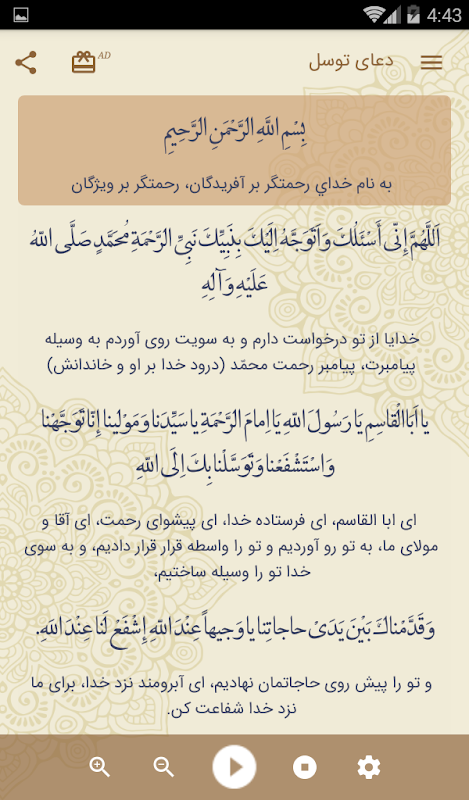 4:43
دعای توسل
AD
بِسْمِ اللَّهِ الرَّحْمَنِ الرَّحِيمِ
به نام خداي رحمتگر بر آفریدگان، رحمتگر بر ویژگان
اَللَّهُمَّ اِنّى اَسْئَلُكَ وَ اَتَوَجَّهُ اِلَيْكَ بِنَبِيِّكَ نَبِىِّ الرَّحْمَةِ مُحَمَّدٍ صَلَّى اللّهُ
عَلَيْهِ وَ آلِهِ
خدایا از تو درخواست دارم و به سویت روی آوردم به وسیله
پیامبرت، پیامبر رحمت محمّد (درود خدا بر او و خاندانش)
يا اَبَاالْقاسِمِ يا رَسُولَ اللّهِ يا اِمامَ الرَّحْمَةِ يا سَيِّدَنا وَ مَوْلينا اِنّا تَوَجَّهْنا
وَ اسْتَشْفَعْنا وَ تَوَسَّلْنا بِكَ اِلَى اللّهِ
ای ابا القاسم، ای فرستاده خدا، ای پیشوای رحمت، ای آقا و
مولای ما، به تو رو آوردیم و تو را واسطه قرار قرار دادیم، و به سوی
خدا تو را وسیله ساختیم،
وَ قَدَّمْناكَ بَيْنَ يَدَىْ حاجاتِنا يا وَجيهاً عِنْدَ اللّهِ اِشْفَعْ لَنا عِنْدَ اللهِ.
و تو را پیش روی حاجاتمان نهادیم، ای آبرومند نزد خدا، برای ما
نزد خدا شفاعت کن.